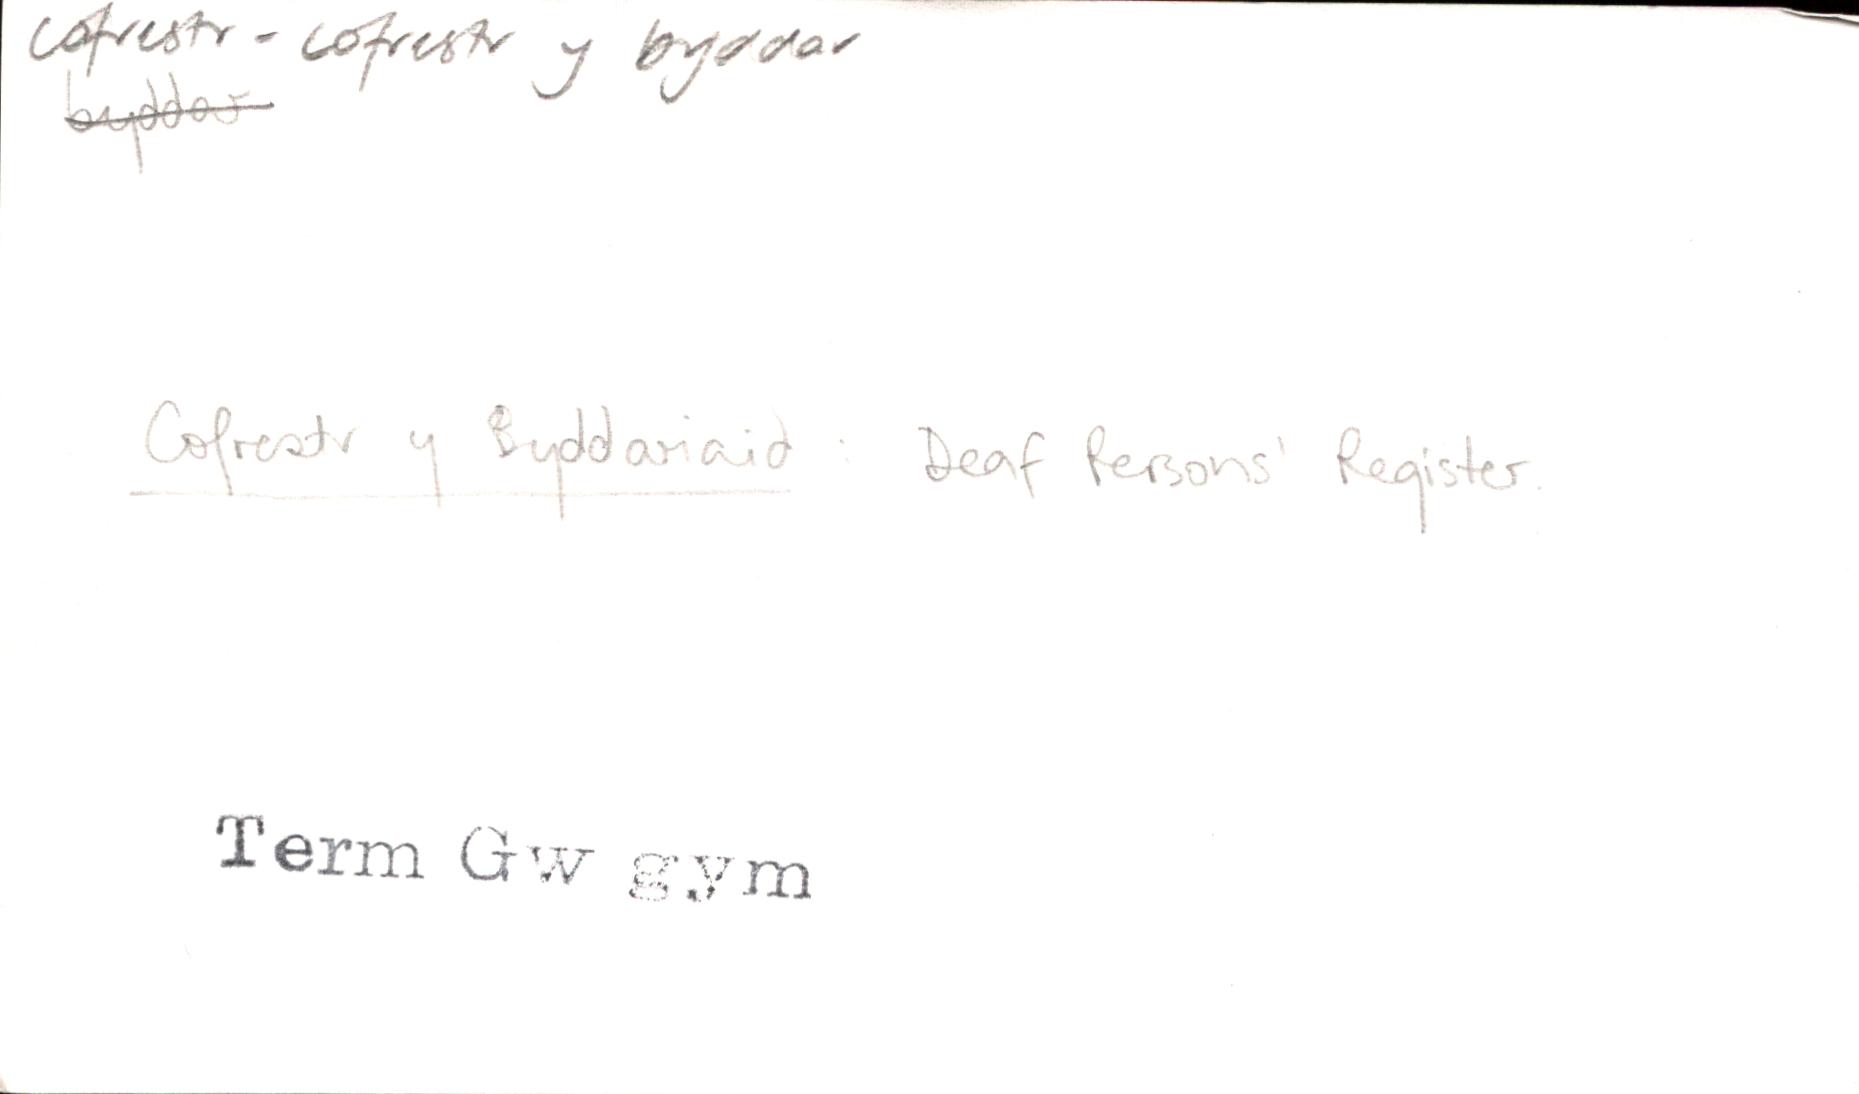 cofrestr - cofrestr y byddar
byddar
Cofrestr y Byddariaid : Deaf Persons' Register.
Term Gw gym